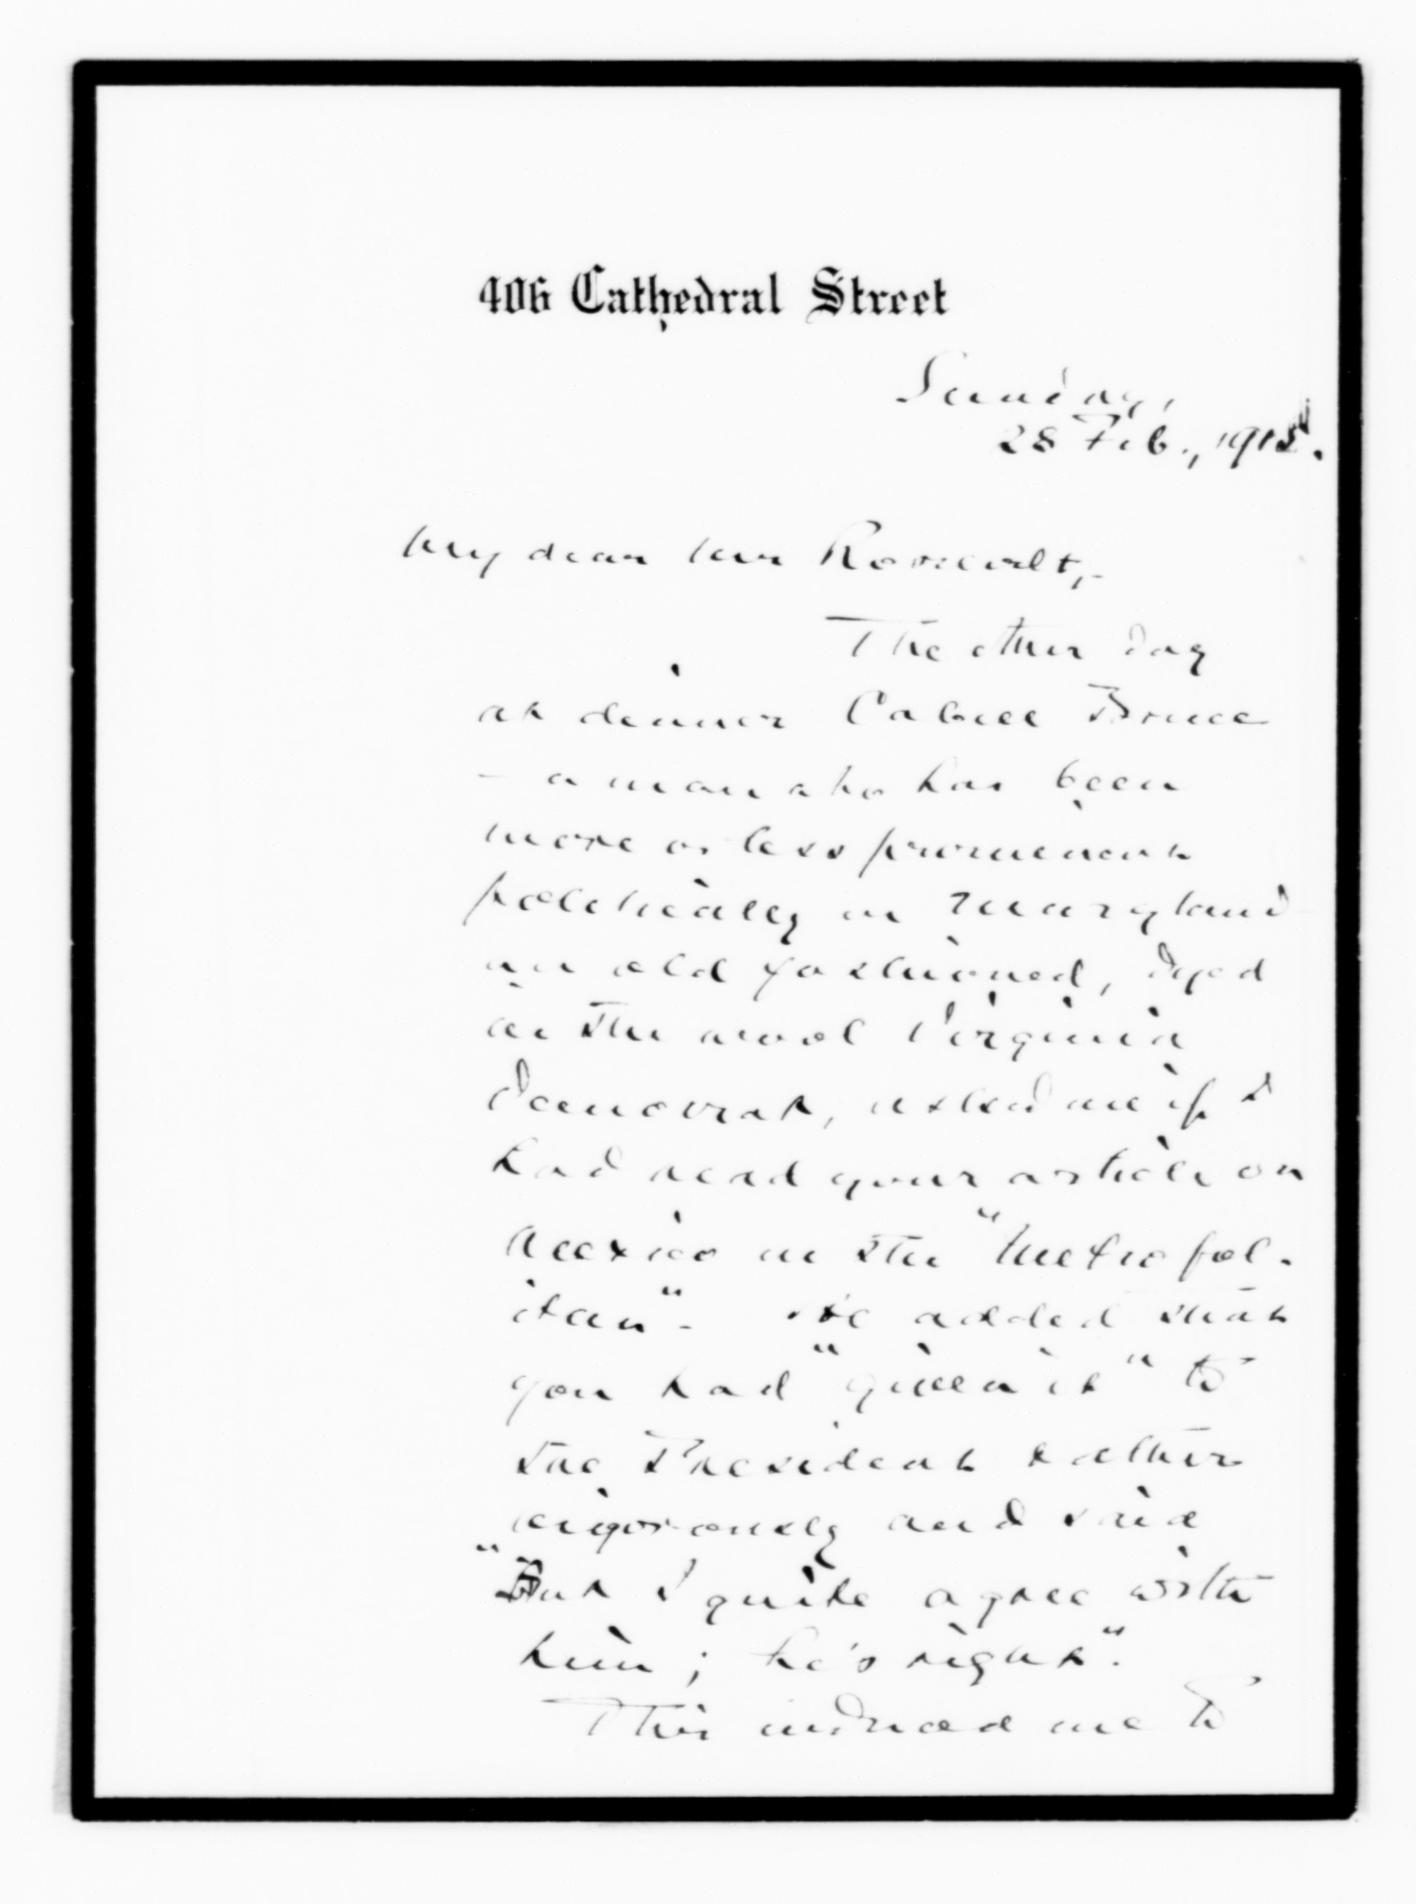 406 Cathedral Street
Sunday,
28 Feb., 1915.
My dear Mr Roosevelt,-
The other day
at dinner Cabell Bruce
- a man who has been
more or less prominent
politically in Maryland
an old fashioned, dyed
in the wool Virginia
democrat, asked me if I
had read your article on
Mexico in the "Metropol-
itan"- He added that
you had "given it" to
the President rather
vigorously and said
"But I quite agree with
him; he's right".
This induced me to